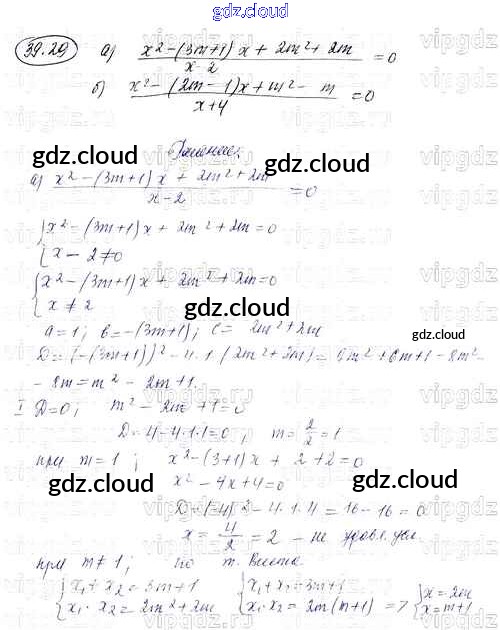 gdz.cloud
39.29 а) x² - (3m+1)x + 2m² + 2m / x-2 = 0
б) x² - (2m-1)x + m² - m / x+4 = 0
Решение:
gdz.cloud gdz.cloud
а) x² - (3m+1)x + 2m² + 2m / x-2 = 0
{ x² - (3m+1)x + 2m² + 2m = 0
{ x - 2 ≠ 0
gdz.cloud
{ x² - (3m+1)x + 2m² + 2m = 0
{ x ≠ 2
gdz.cloud
a = 1; b = -(3m+1); c = 2m² + 2m
D = (-(3m+1))² - 4·1·(2m² + 2m) = 9m² + 6m + 1 - 8m² -
- 8m = m² - 2m + 1.
I D = 0; m² - 2m + 1 = 0
D = 4 - 4·1·1 = 0; m = 2/2 = 1
при m = 1; x² - (3+1)x + 2 + 2 = 0
gdz.cloud gdz.cloud
x² - 4x + 4 = 0
D = (-4)² - 4·1·4 = 16 - 16 = 0
x = 4/2 = 2 - не удовл. усл.
gdz.cloud
при m ≠ 1; по т. Виета
{ x₁ + x₂ = 3m+1 { x₁ + x₂ = 3m+1 { x = 2m
{ x₁ · x₂ = 2m² + 2m { x₁ · x₂ = 2m(m+1) => { x = m+1